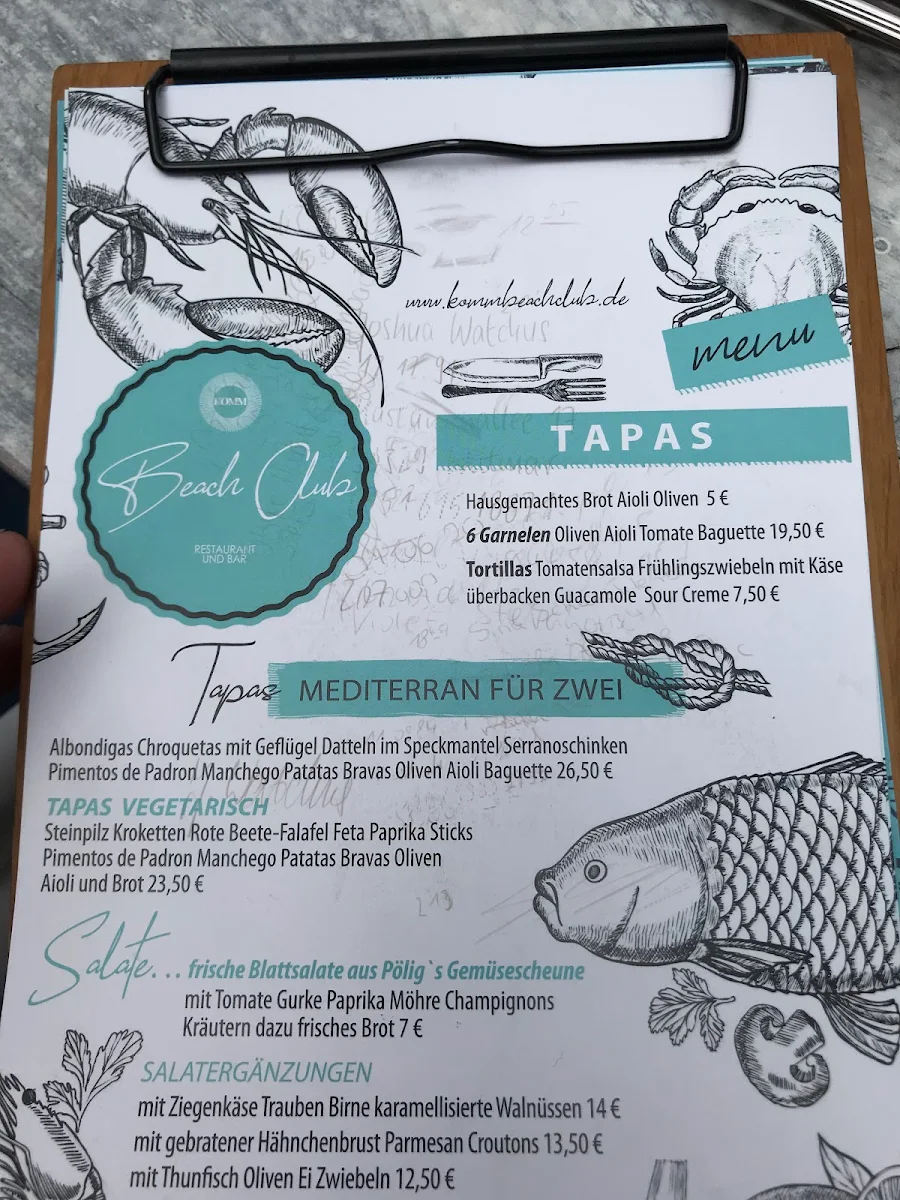 www.kommbeachclub.de
menu
KOMM
Beach Club
RESTAURANT
UND BAR
TAPAS
Hausgemachtes Brot Aioli Oliven 5 €
6 Garnelen Oliven Aioli Tomate Baguette 19,50 €
Tortillas Tomatensalsa Frühlingszwiebeln mit Käse
überbacken Guacamole Sour Creme 7,50 €
Tapas MEDITERRAN FÜR ZWEI
Albondigas Chroquetas mit Geflügel Datteln im Speckmantel Serranoschinken
Pimentos de Padron Manchego Patatas Bravas Oliven Aioli Baguette 26,50 €
TAPAS VEGETARISCH
Steinpilz Kroketten Rote Beete-Falafel Feta Paprika Sticks
Pimentos de Padron Manchego Patatas Bravas Oliven
Aioli und Brot 23,50 €
Salate... frische Blattsalate aus Pölig`s Gemüsescheune
mit Tomate Gurke Paprika Möhre Champignons
Kräutern dazu frisches Brot 7 €
SALATERGÄNZUNGEN
mit Ziegenkäse Trauben Birne karamellisierte Walnüssen 14 €
mit gebratener Hähnchenbrust Parmesan Croutons 13,50 €
mit Thunfisch Oliven Ei Zwiebeln 12,50 €